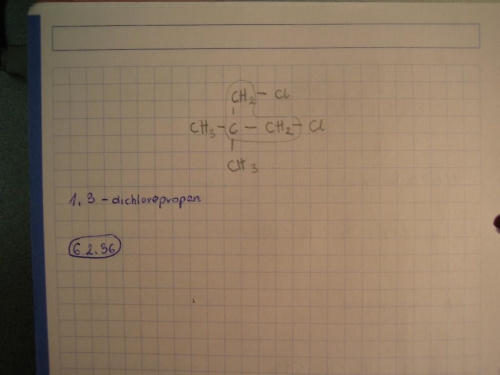 CH2 - Cl
CH3 - C - CH2 - Cl
CH3
1,3-dichloropropan
62.36